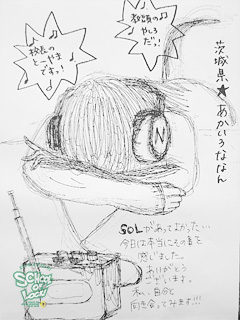 校長の
とーやま
ですっ!
教頭の
やしろ
だっ!
茨城県★あかいろななん
N
SOLがあってよかった…
今日は本当にその事を
感じました
ありがとう
ございます。
私、自分と
向き合ってみます!!!
SCHOOL
OF
LOCK!